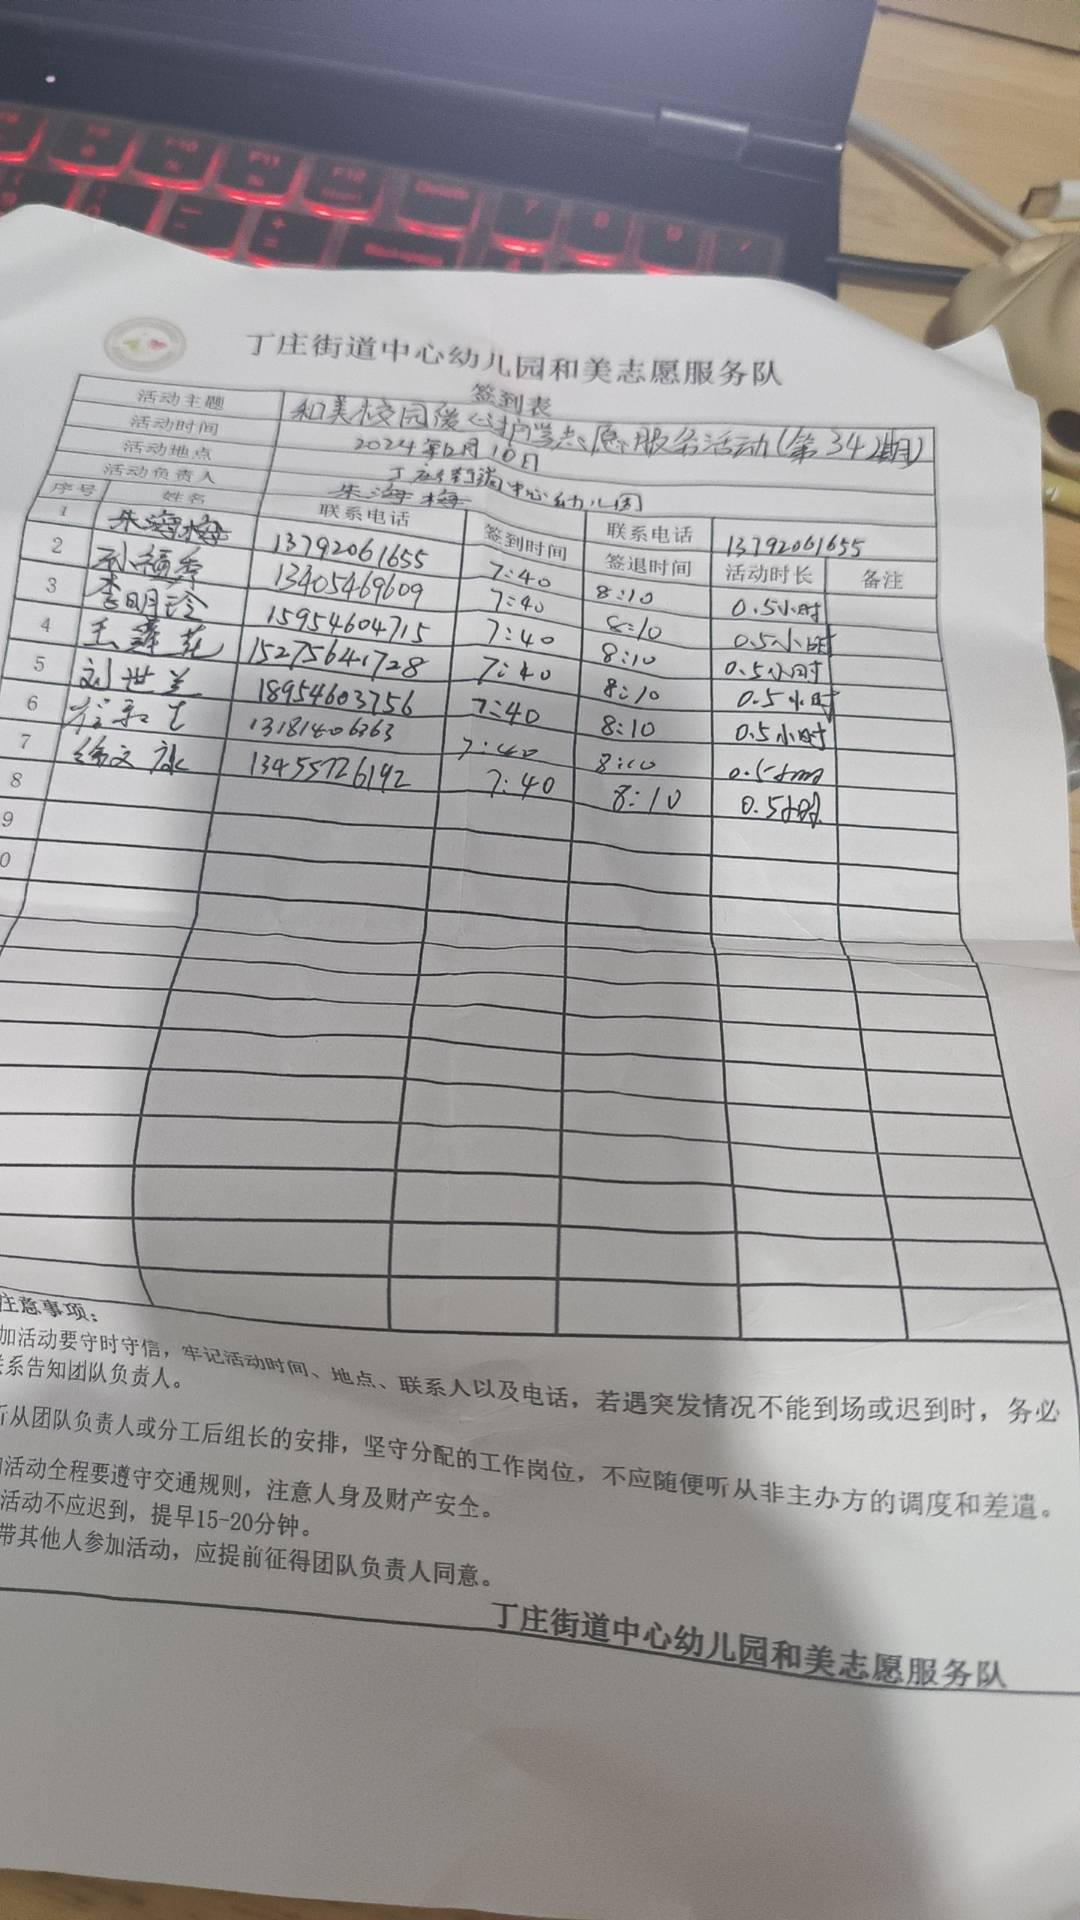 F10
F11
F12
Delete
7
8
9
Backspace
丁庄街道中心幼儿园和美志愿服务队
签到表
活动主题 和美校园暖心护学志愿服务活动(第342期)
活动时间 2024年12月10日
活动地点 丁庄街道中心幼儿园
活动负责人 朱海梅 联系电话 13792061655
序号 姓名 联系电话 签到时间 签退时间 活动时长 备注
1 朱海梅 13792061655 7:40 8:10 0.5小时
2 13405469609 7:40 8:10 0.5小时
3 李明玲 15954604715 7:40 8:10 0.5小时
4 15275641728 7:40 8:10 0.5小时
5 刘世兰 18954603756 7:40 8:10 0.5小时
6 13181406363 7:40 8:10 0.5小时
7 徐文 13455726192 7:40 8:10 0.5小时
8
9
0
注意事项:
加活动要守时守信，牢记活动时间、地点、联系人以及电话，若遇突发情况不能到场或迟到时，务必
系告知团队负责人。
听从团队负责人或分工后组长的安排，坚守分配的工作岗位，不应随便听从非主办方的调度和差遣。
活动全程要遵守交通规则，注意人身及财产安全。
活动不应迟到，提早15-20分钟。
带其他人参加活动，应提前征得团队负责人同意。
丁庄街道中心幼儿园和美志愿服务队